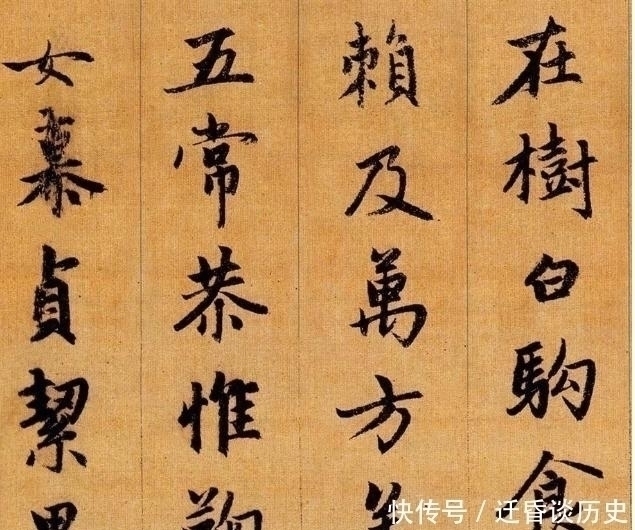 在樹白駒食
賴及萬方
五常恭惟鞠
女慕貞絜男
快传号/迁昏谈历史